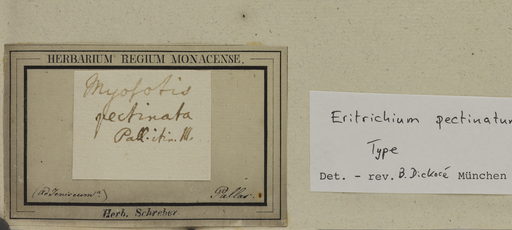 HERBARIUM REGIUM MONACENSE.
Myosotis
pectinata
Pall. itin. III.
(ad Jeniseum)
Pallas.
Herb. Schreber
Eritrichium pectinatum
Type
Det. - rev. B. Dickoré München